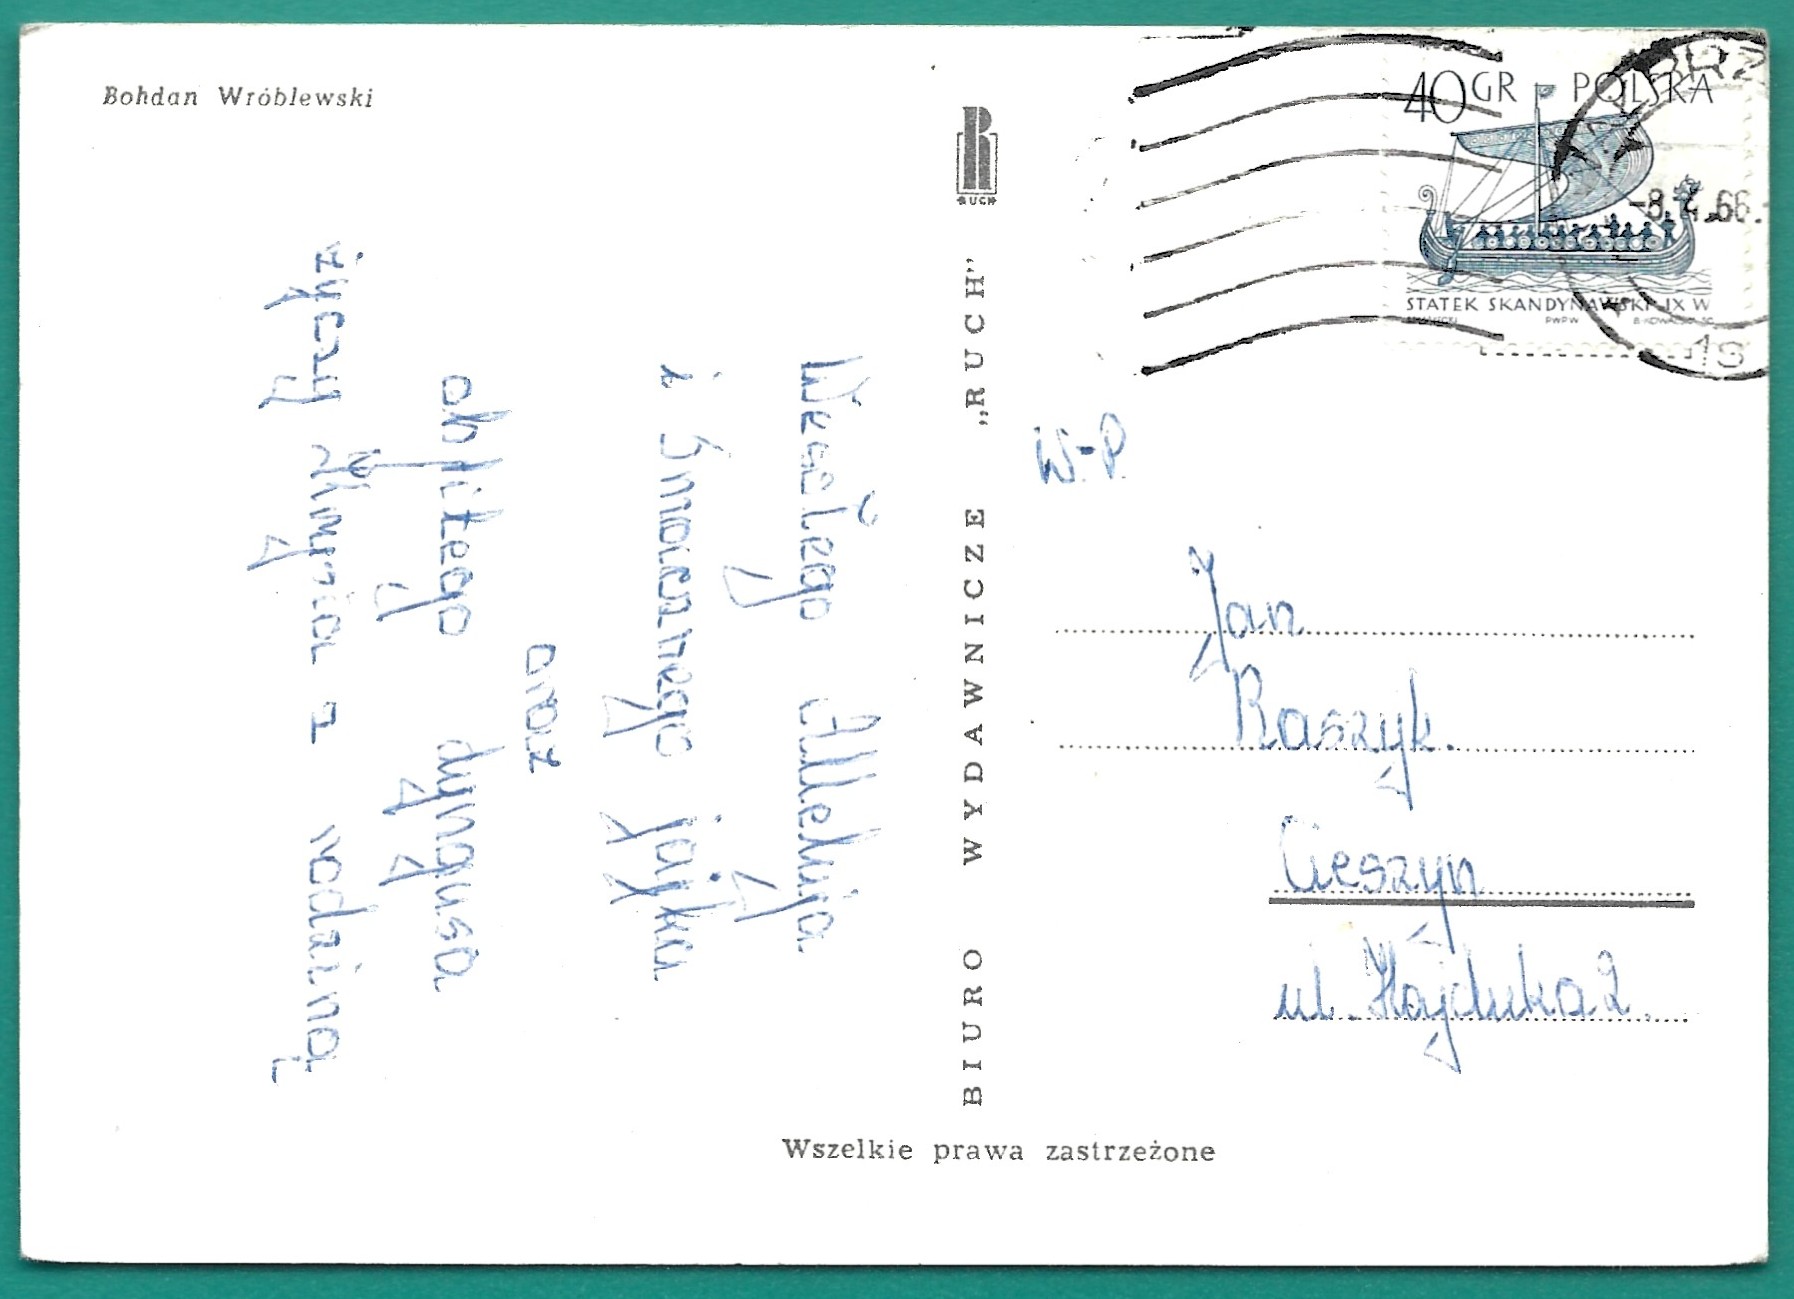 Bohdan Wróblewski
Wesełego Alleluja
i Smacznego jajka
oraz
obfitego dyngusa
życzy z rodziną
RUCH
BIURO WYDAWNICZE „RUCH”
Wszelkie prawa zastrzeżone
40 GR POLSKA
-8.4.66.
STATEK SKANDYNAWSKI IX W
PWPW
W.P.
Jan
Raszyk.
Cieszyn
ul. Hajduka 2.